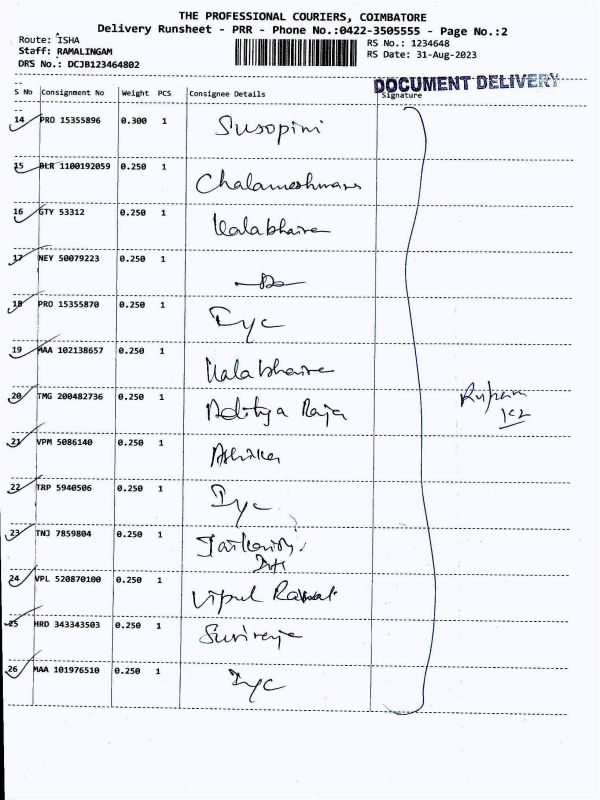 THE PROFESSIONAL COURIERS, COIMBATORE
Delivery Runsheet - PRR - Phone No.:0422-3505555 - Page No.:2
Route: ISHA
Staff: RAMALINGAM
DRS No.: DCJB123464802
RS No.: 1234648
RS Date: 31-Aug-2023
DOCUMENT DELIVERY
S No Consignment No Weight PCS Consignee Details Signature
14 PRO 15355896 0.300 1 Susopini
15 BLR 1100192059 0.250 1 Chalameshwara
16 GTY 53312 0.250 1 Kalabhaira
17 NEY 50079223 0.250 1 Do
18 PRO 15355870 0.250 1 Iyc
19 MAA 102138657 0.250 1 Kalabhaira
20 TMG 200482736 0.250 1 Aditya Raja
21 VPM 5086140 0.250 1
22 TRP 5940506 0.250 1 Iyc
23 TNJ 7859804 0.250 1
24 VPL 520870100 0.250 1 Vipul
25 HRD 343343503 0.250 1
26 MAA 101976510 0.250 1 Iyc